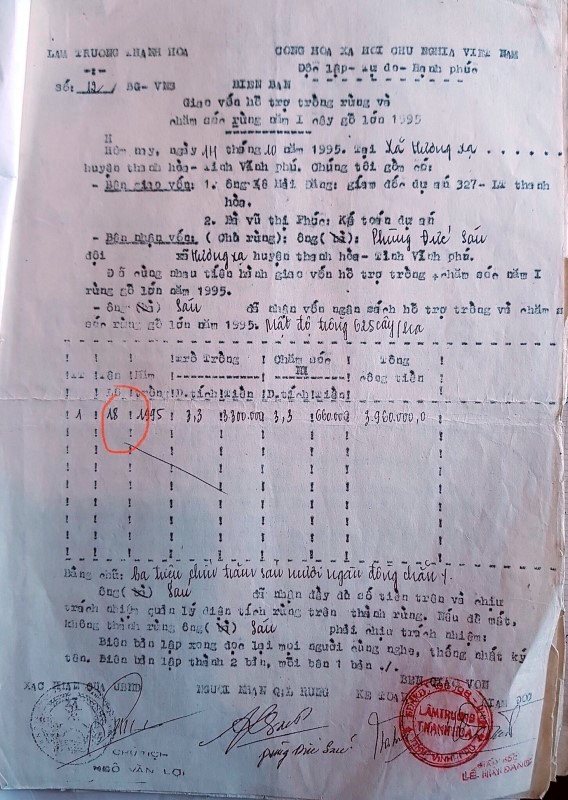 LÂM TRƯỜNG THANH HÒA CỘNG HÒA XÃ HỘI CHỦ NGHĨA VIỆT NAM
Độc lập - Tự do - Hạnh phúc
Số: 13 / BG - VN3 BIÊN BẢN
Giao vốn hỗ trợ trồng rừng và
chăm sóc rừng năm I cây gỗ lớn 1995
Hôm nay, ngày 14 tháng 10 năm 1995. Tại Xã Hương xạ . . . . . .
huyện thanh hòa - Tỉnh Vĩnh phú. Chúng tôi gồm có:
- Bên giao vốn: 1. ông Lê Hải Đăng: giám đốc dự án 327 - LT thanh
hòa.
2. Bà vũ thị Phúc: Kế toán dự án
- Bên nhận vốn: ( Chủ rừng): ông(bà): Phùng Đức Sáu
đội xã Hương xạ huyện thanh hòa - Tỉnh Vĩnh phú.
Đã cùng nhau tiến hành giao vốn hỗ trợ trồng + chăm sóc năm I
rừng gỗ lớn năm 1995.
- ông (bà) Sáu đã nhận vốn ngân sách hỗ trợ trồng và chăm
sóc rừng gỗ lớn năm 1995. Mật độ trồng 625 cây/ha
! ! ! Trồng ! Chăm sóc ! Tổng !
! TT ! Tên ! Năm cộng tiền
! lô ! trồng ! D.tích ! Tiền ! D.tích ! Tiền !
! 1 ! 18 ! 1995 ! 3,3 ! 3300.000 ! 3,3 ! 660.000 ! 3.960.000,0 !
Bằng chữ: Ba triệu chín trăm sáu mươi ngàn đồng chẵn
ông(bà) Sáu đã nhận đầy đủ số tiền trên và chịu
trách nhiệm quản lý diện tích rừng trên thành rừng. Nếu để mất,
không thành rừng ông(bà) Sáu phải chịu trách nhiệm:
Biên bản lập xong đọc lại mọi người cùng nghe, thống nhất ký
tên. Biên bản lập thành 2 bản, mỗi bên 1 bản ./.
BÊN GIAO VỐN
XÁC NHẬN CỦA UBND NGƯỜI NHẬN QL RỪNG KẾ TOÁN GIÁM ĐỐC
LÂM TRƯỜNG
THANH HÒA
Phùng Đức Sáu
CHỦ TỊCH
NGÔ VĂN LỢI
GIÁM ĐỐC
LÊ HẢI ĐĂNG